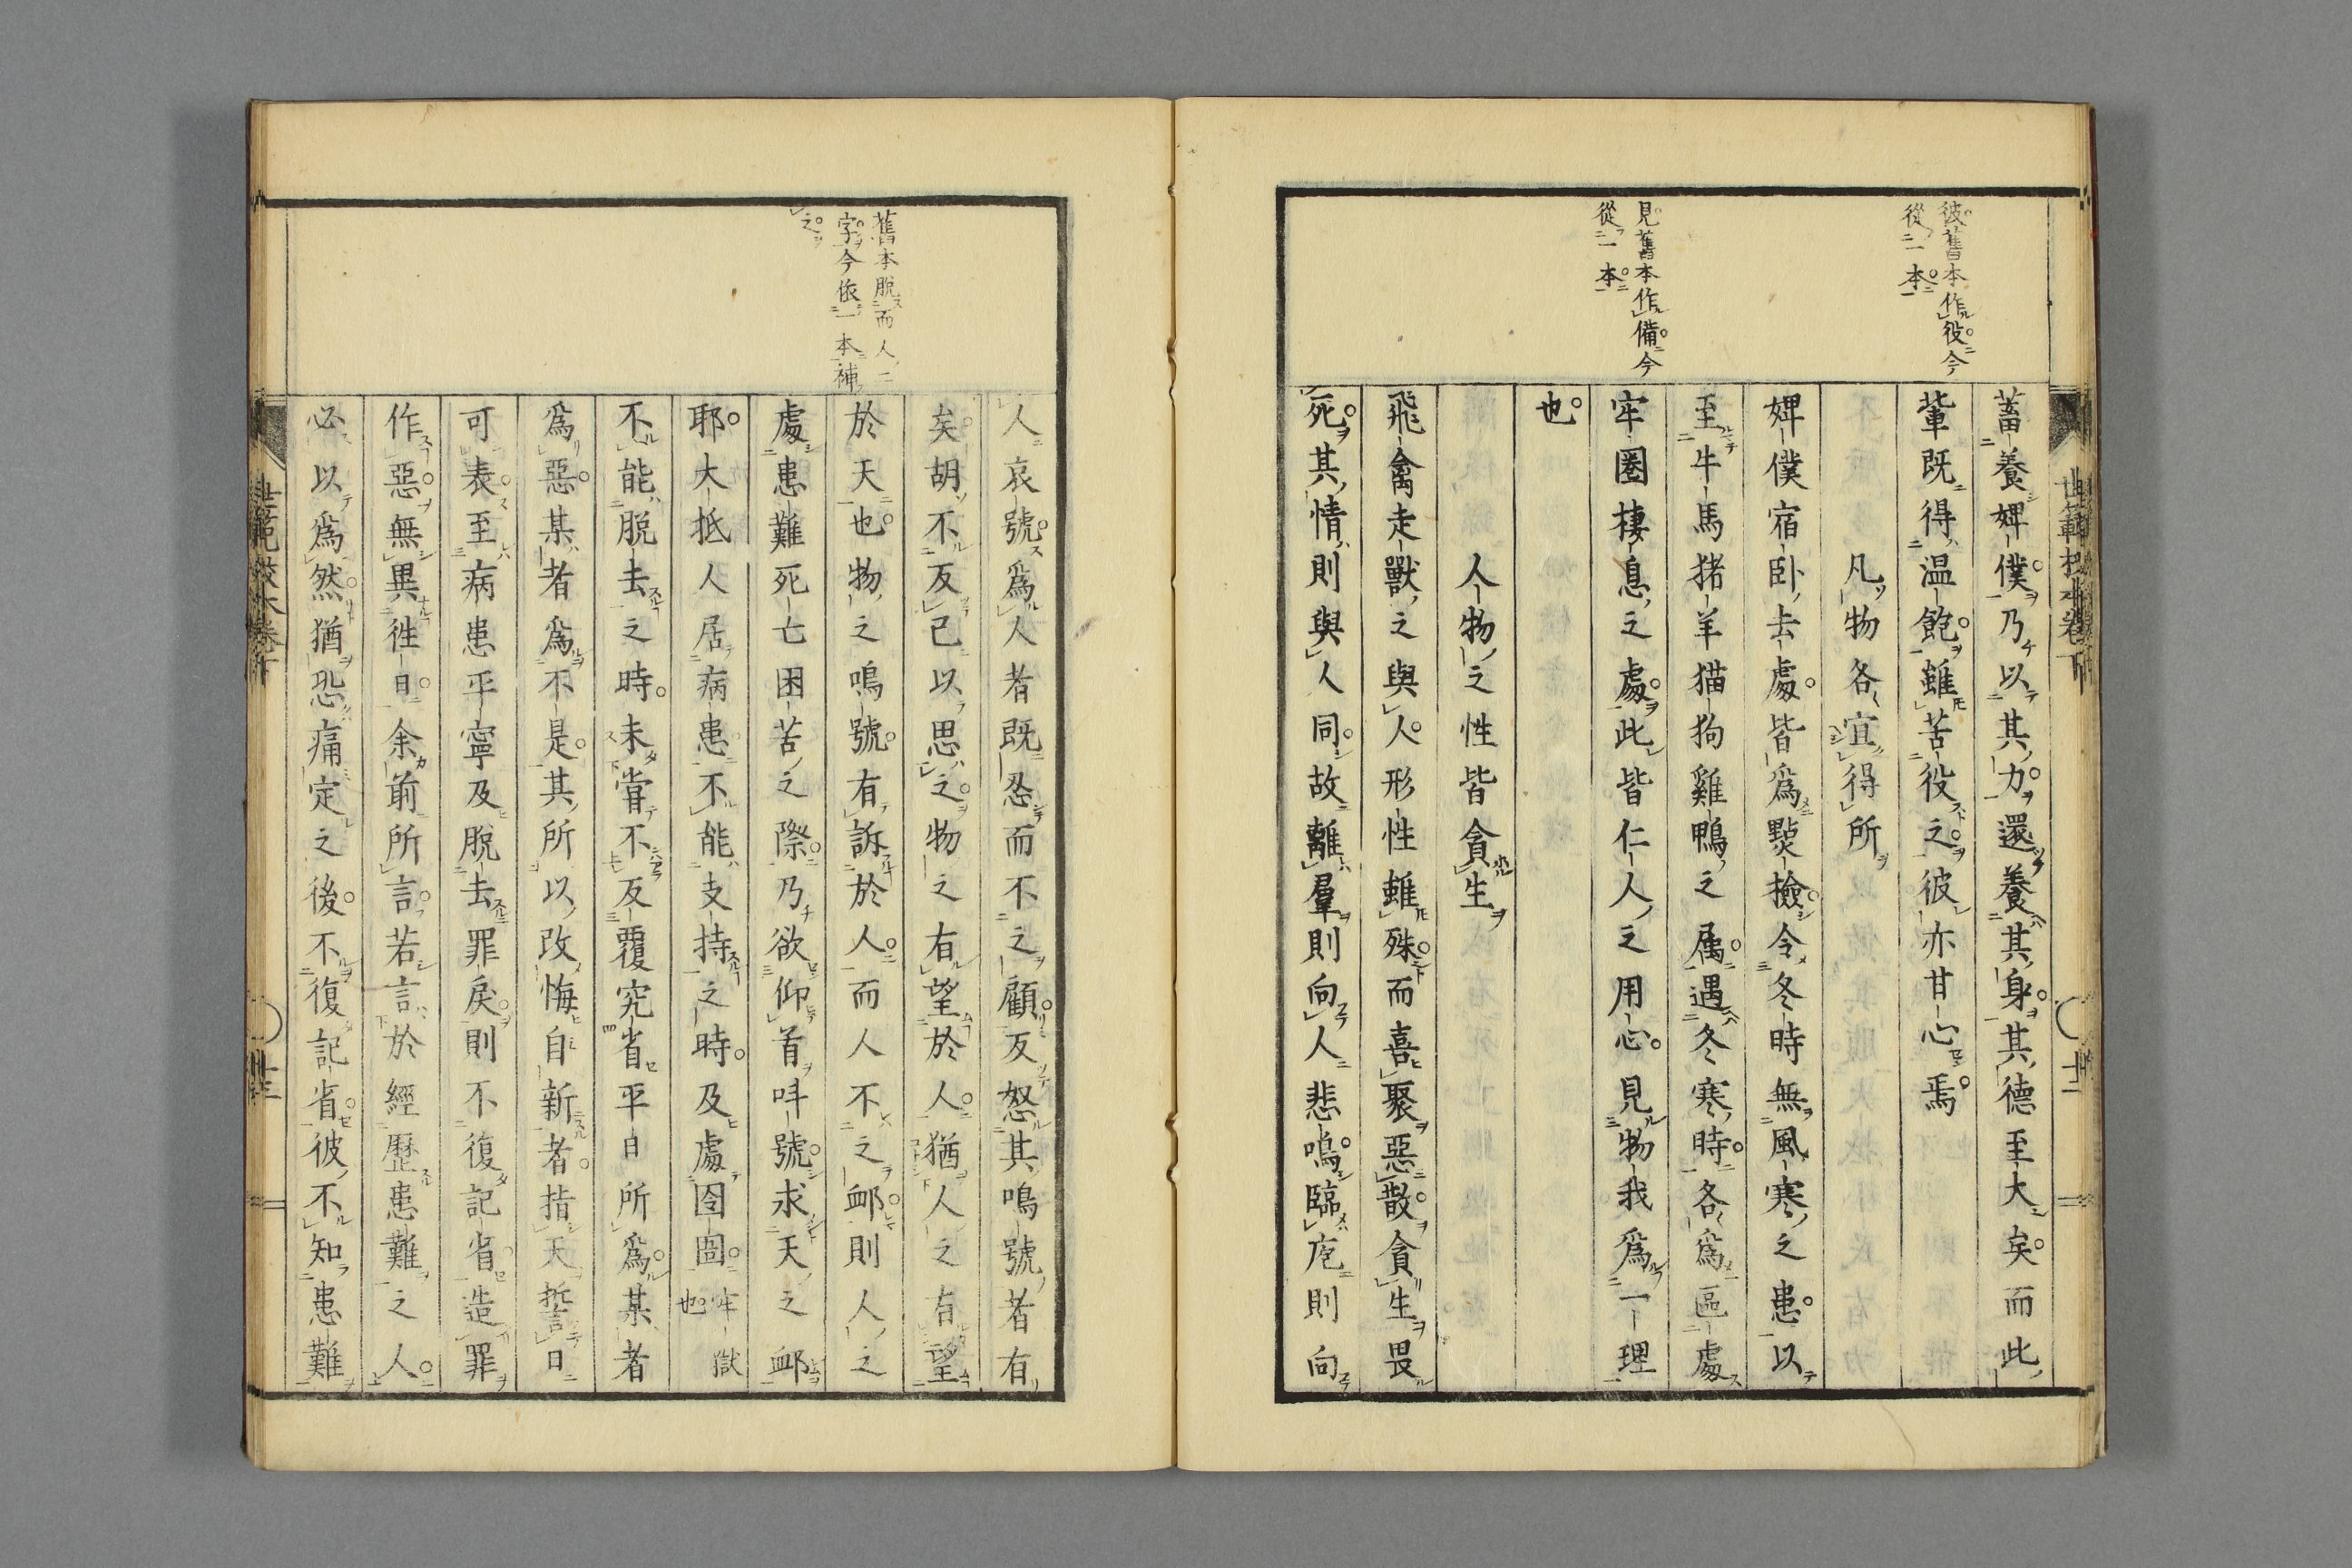 彼舊本作役今
從一本
見舊本作備今
從一本
蓄養婢僕乃以其力還養其身其德至大矣而此
輩既得温飽雖苦役之彼亦甘心焉
凡物各宜得所
婢僕宿卧去處皆爲㸃檢令冬時無風寒之患以
至牛馬猪羊猫狗雞鴨之属遇冬寒時各爲區處
牢圈棲息之處此皆仁人之用心見物我爲一理
也
人物之性皆貪生
飛禽走獸之與人形性雖殊而喜聚惡散貪生畏
死其情則與人同故離羣則向人悲鳴臨庖則向
舊本脱而人二
字今依一本補
之
人哀號爲人者既忍而不之顧反怒其鳴號者有
矣胡不反己以思之物之有望於人猶人之有望
於天也物之鳴號有訴於人而人不之䘏則人之
處患難死亡困苦之際乃欲仰首呌號求天之䘏
耶大抵人居病患不能支持之時及處囹圄牢獄也
不能脱去之時未嘗不反覆究省平日所爲某者
爲惡某者爲不是其所以改悔自新者指天誓日
可表至病患平寧及脱去罪戾則不復記省造罪
作惡無異徃日余前所言若言於經歷患難之人
必以爲然猶恐痛定之後不復記省彼不知患難